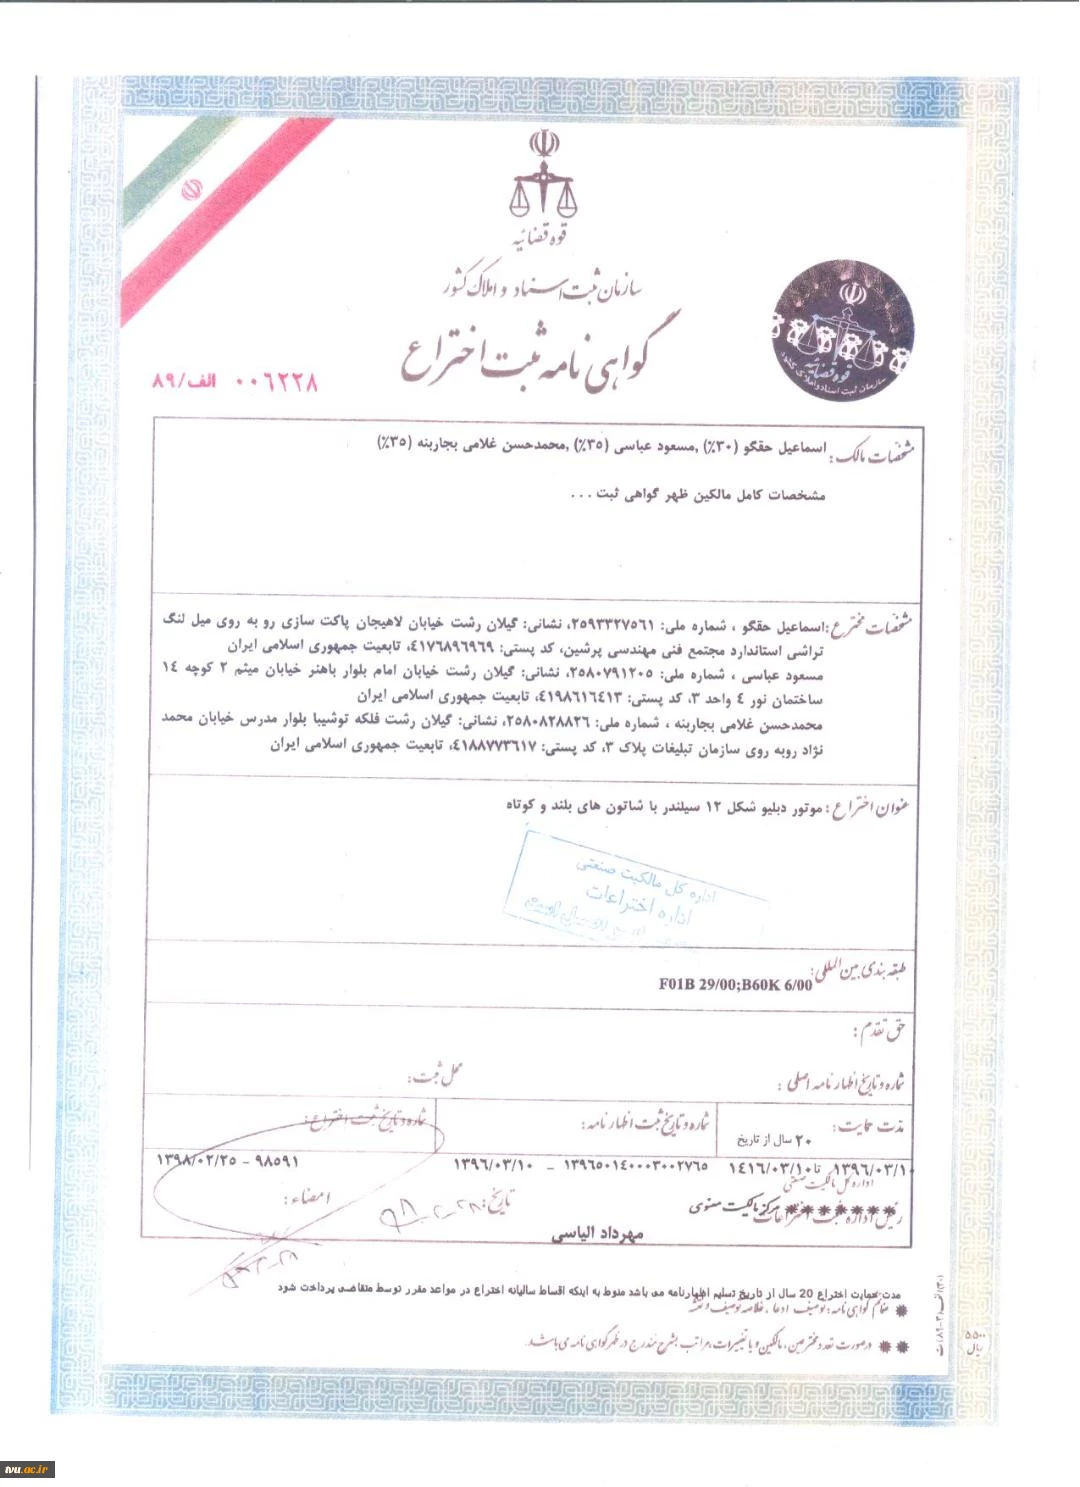 قوه قضائیه
سازمان ثبت اسناد و املاک کشور
گواهی نامه ثبت اختراع
۰۰۶۲۲۸ الف/۸۹
قوه قضائیه
سازمان ثبت اسناد و املاک کشور
مشخصات مالک: اسماعیل حقگو (۳۰٪) ,مسعود عباسی (۳۵٪) ,محمدحسن غلامی بجاربنه (۳۵٪)
مشخصات کامل مالکین ظهر گواهی ثبت . . .
مشخصات مخترع: اسماعیل حقگو ، شماره ملی: ۲۵۹۳۳۲۷۵۶۱، نشانی: گیلان رشت خیابان لاهیجان پاکت سازی رو به روی میل لنگ
تراشی استاندارد مجتمع فنی مهندسی پرشین، کد پستی: ۴۱۷۶۸۹۶۹۶۹، تابعیت جمهوری اسلامی ایران
مسعود عباسی ، شماره ملی: ۲۵۸۰۷۹۱۲۰۵، نشانی: گیلان رشت خیابان امام بلوار باهنر خیابان میثم ۲ کوچه ۱۴
ساختمان نور ۴ واحد ۳، کد پستی: ۴۱۹۸۶۱۶۴۱۳، تابعیت جمهوری اسلامی ایران
محمدحسن غلامی بجاربنه ، شماره ملی: ۲۵۸۰۸۲۸۸۲۶، نشانی: گیلان رشت فلکه توشیبا بلوار مدرس خیابان محمد
نژاد روبه روی سازمان تبلیغات پلاک ۳، کد پستی: ۴۱۸۸۷۷۳۶۱۷، تابعیت جمهوری اسلامی ایران
عنوان اختراع: موتور دبلیو شکل ۱۲ سیلندر با شاتون های بلند و کوتاه
اداره کل مالکیت صنعتی
اداره اختراعات
طبقه بندی بین المللی: F01B 29/00;B60K 6/00
حق تقدم:
شماره و تاریخ اظهارنامه اصلی: محل ثبت:
مدت حمایت: ۲۰ سال از تاریخ
۱۳۹۶/۰۳/۱۰ تا ۱۴۱۶/۰۳/۱۰
شماره و تاریخ ثبت اظهارنامه:
۱۳۹۶۵۰۱۴۰۰۰۳۰۰۲۷۶۵ - ۱۳۹۶/۰۳/۱۰
شماره و تاریخ ثبت اختراع:
۹۸۵۹۱ - ۱۳۹۸/۰۲/۲۵
اداره کل مالکیت صنعتی
رئیس اداره ثبت اختراعات مرکز مالکیت معنوی
تاریخ: امضاء:
مهرداد الیاسی
مدت حمایت اختراع 20 سال از تاریخ تسلیم اظهارنامه می باشد منوط به اینکه اقساط سالیانه اختراع در مواعد مقرر توسط متقاضی پرداخت شود
✱ ضمائم گواهی نامه: توصیف، ادعا، خلاصه توصیف و نقشه
✱✱ درصورت تعدد مخترعین، مالکین و یا تغییرات، مراتب بشرح مندرج در ظهر گواهی نامه می باشد.
۵۵۰۰
ریال
tvu.ac.ir